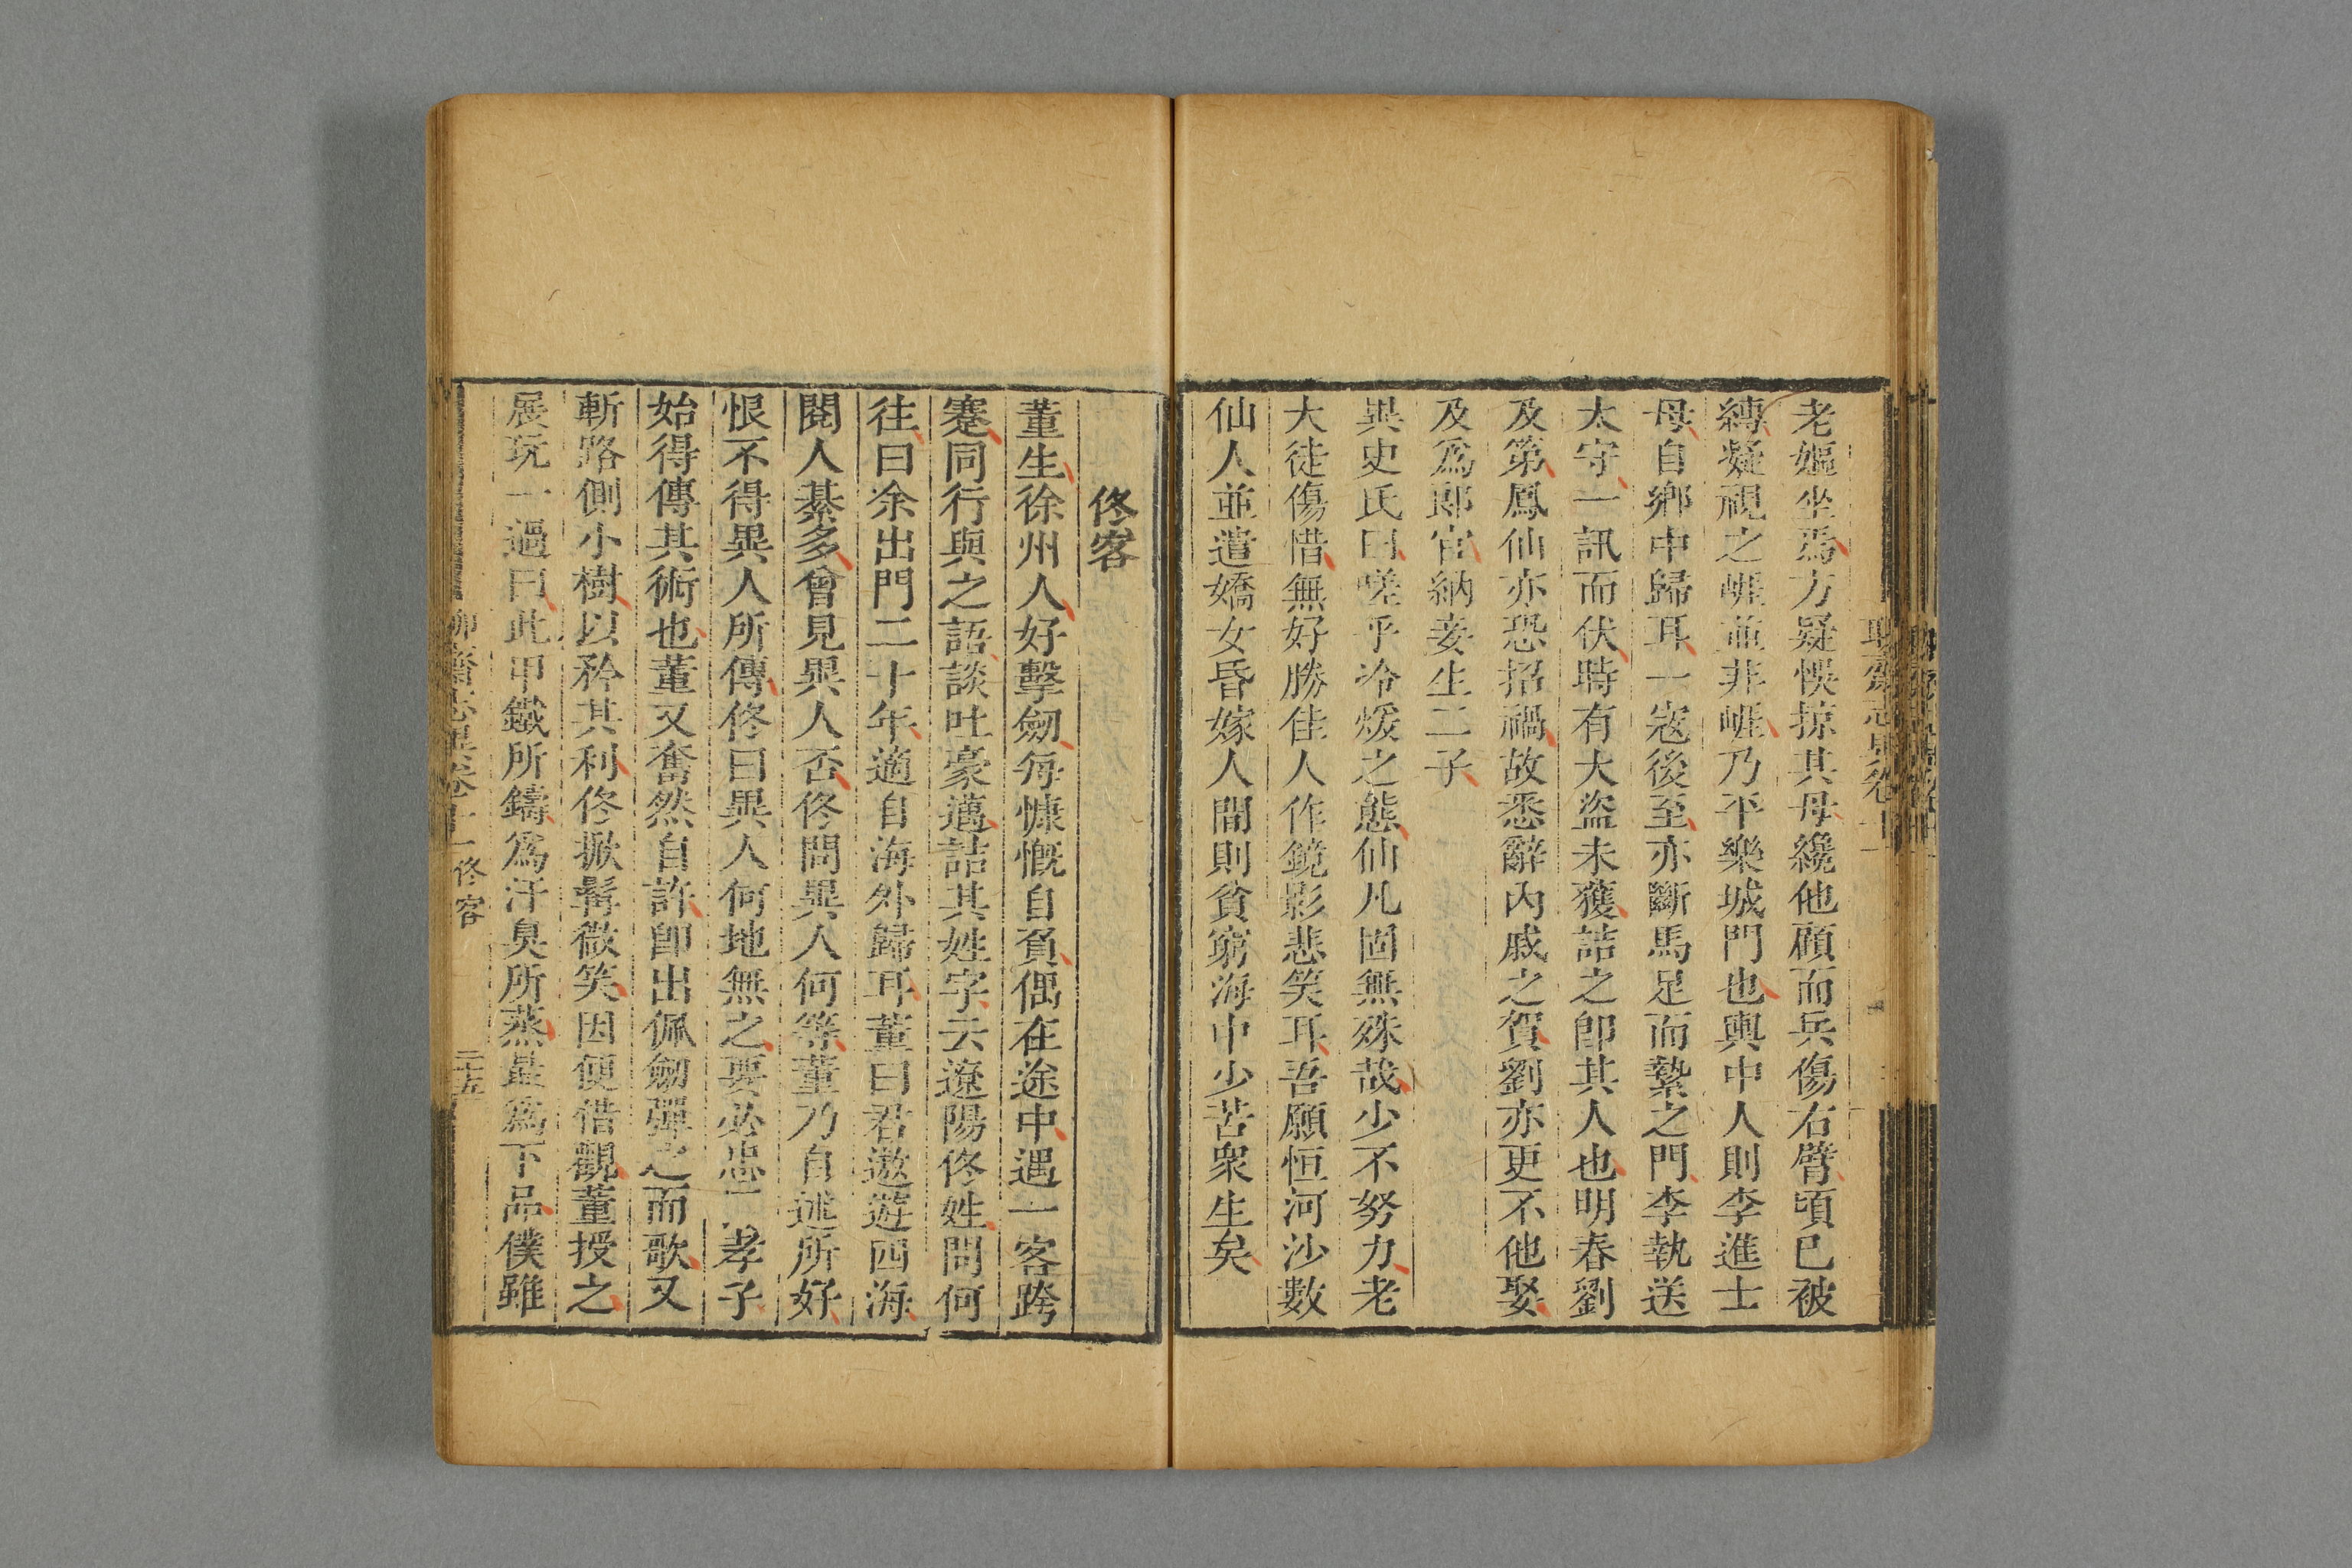 老嫗坐焉方疑悞掠其母纔他顧而兵傷右臂頃已被
縛凝視之崕並非崕乃平樂城門也輿中人則李進士
母自鄉中歸耳一寇後至亦斷馬足而縶之門李執送
太守一訊而伏時有大盜未獲詰之卽其人也明春劉
及第鳳仙亦恐招禍故悉辭內戚之賀劉亦更不他娶
及爲郎官納妾生二子
異史氏曰嗟乎冷煖之態仙凡固無殊哉少不努力老
大徒傷惜無好勝佳人作鏡影悲笑耳吾願恒河沙數
仙人並遣嬌女昏嫁人間則貧窮海中少苦衆生矣
佟客
董生徐州人好擊劒每慷慨自負偶在途中遇一客跨
蹇同行與之語談吐豪邁詰其姓字云遼陽佟姓問何
往曰余出門二十年適自海外歸耳董曰君遨遊四海
閱人綦多曾見異人否佟問異人何等董乃自述所好
恨不得異人所傳佟曰異人何地無之要必忠孝子
始得傳其術也董又奮然自許卽出佩劒彈之而歌又
斬路側小樹以矜其利佟掀髯微笑因便借觀董授之
展玩一過曰此甲鐵所鑄爲汗臭所蒸最爲下品僕雖
聊齋志異卷十一 佟客 二十五